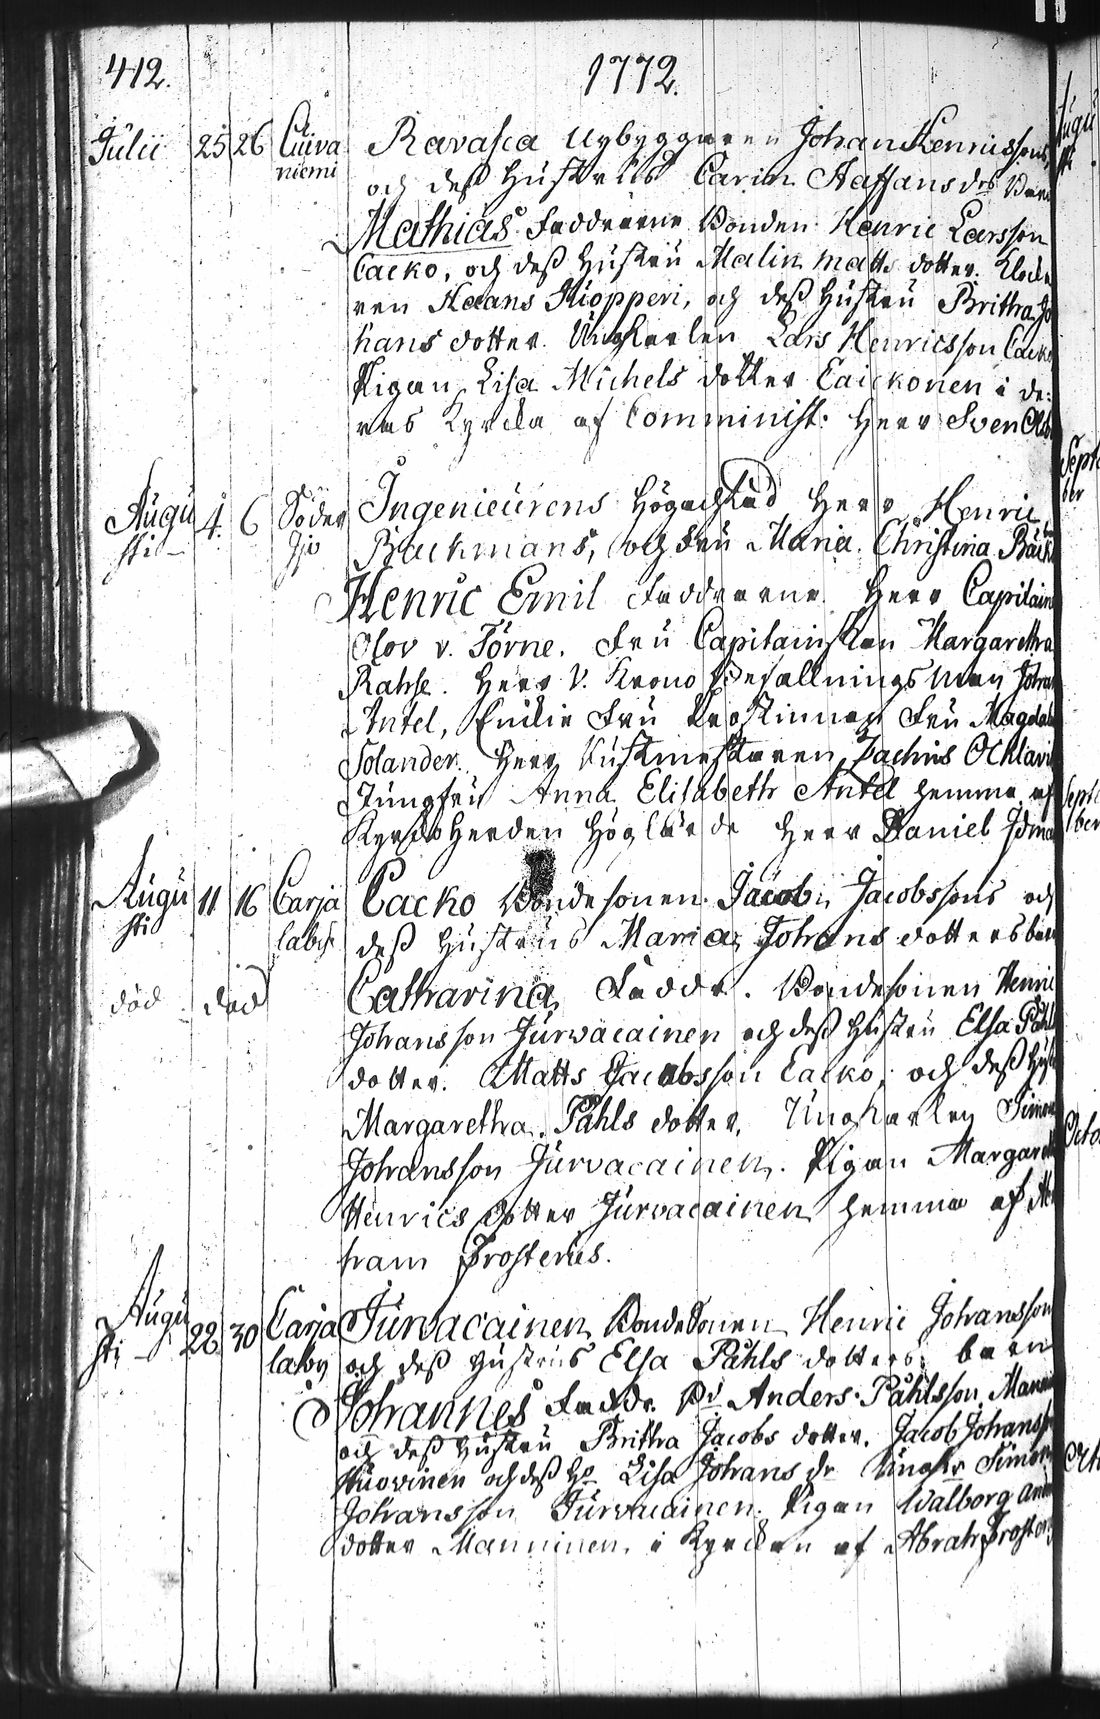 412. 1772.
Julii 25 26 Cuiva Ravasca Nybyggaren Johan Hennissons
niemi och dess Hustrus Carin Staffans drs Barn
Mathias Faddrarne Bonden Henric Larsson
Cacko, och dess Hustru Malin Matts dotter. Klocka
ren Staans Kiopperi, och dess Hustru Brittha Jo
hans dotter. Ungkarlen Lars Henricsson Cacko
Pigan Lisa Michels dotter Caickonen i de:
ras Kyrcka af Comminist: Herr Sven
Augu 4. 6 Söder Ingenieurens Högachtad Herr Henric
sti – Backmans, och Fru Maria Christina
Henric Emil Faddrarne Herr Capitain
Olov v. Törne. Fru Capitainskan Margaretha
Rahse. Herr V. Krono Befallnings Man Johan
Antel, Fru Magdal
Solander. Herr Rustmestaren Zachris
Jungfru Anna Elisabeth Antel hemma af
Kyrckoherden Höglärde Herr Daniel
Augu 11 16 Carja Cacko Bondesonen Jacob Jacobssons och
sti laby dess Hustrus Maria Johans dotters barn
död död Catharina Faddr. Bondesonen Henric
Johansson Jurvacainen och dess Hustru Elsa Påhls
dotter. Matts Jacobsson Cacko, och dess Hust
Margaretha Påhls dotter, Ungkarlen Simon
Johansson Jurvacainen. Pigan Margareth
Henrics dotter Jurvacainen hemma af Ab
ham Frosterus.
Augu 22. 30 Carja Jurvacainen Bondesonen Henric Johansson
sti – laby och dess Hustrus Elsa Påhls dotters barn
Johannes Faddr. Bd Anders Påhlsson
och dess Hustru Brittha Jacobs dotter. Jacob Johanss
och dess Ho Lisa Johans dr Ungkr Simon
Johansson Jurvacainen. Pigan Walborg And
dotter Manninen i Kyrckan af Abrah Froster